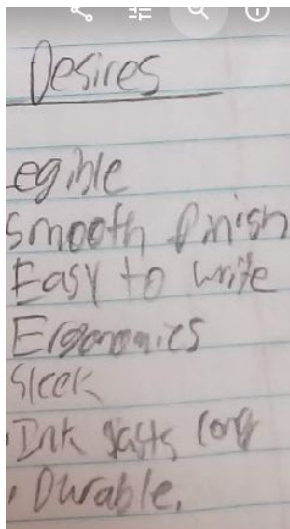 Desires
Legible
Smooth finish
Easy to write
Ergonomics
Sleek
Ink lasts long
Durable.